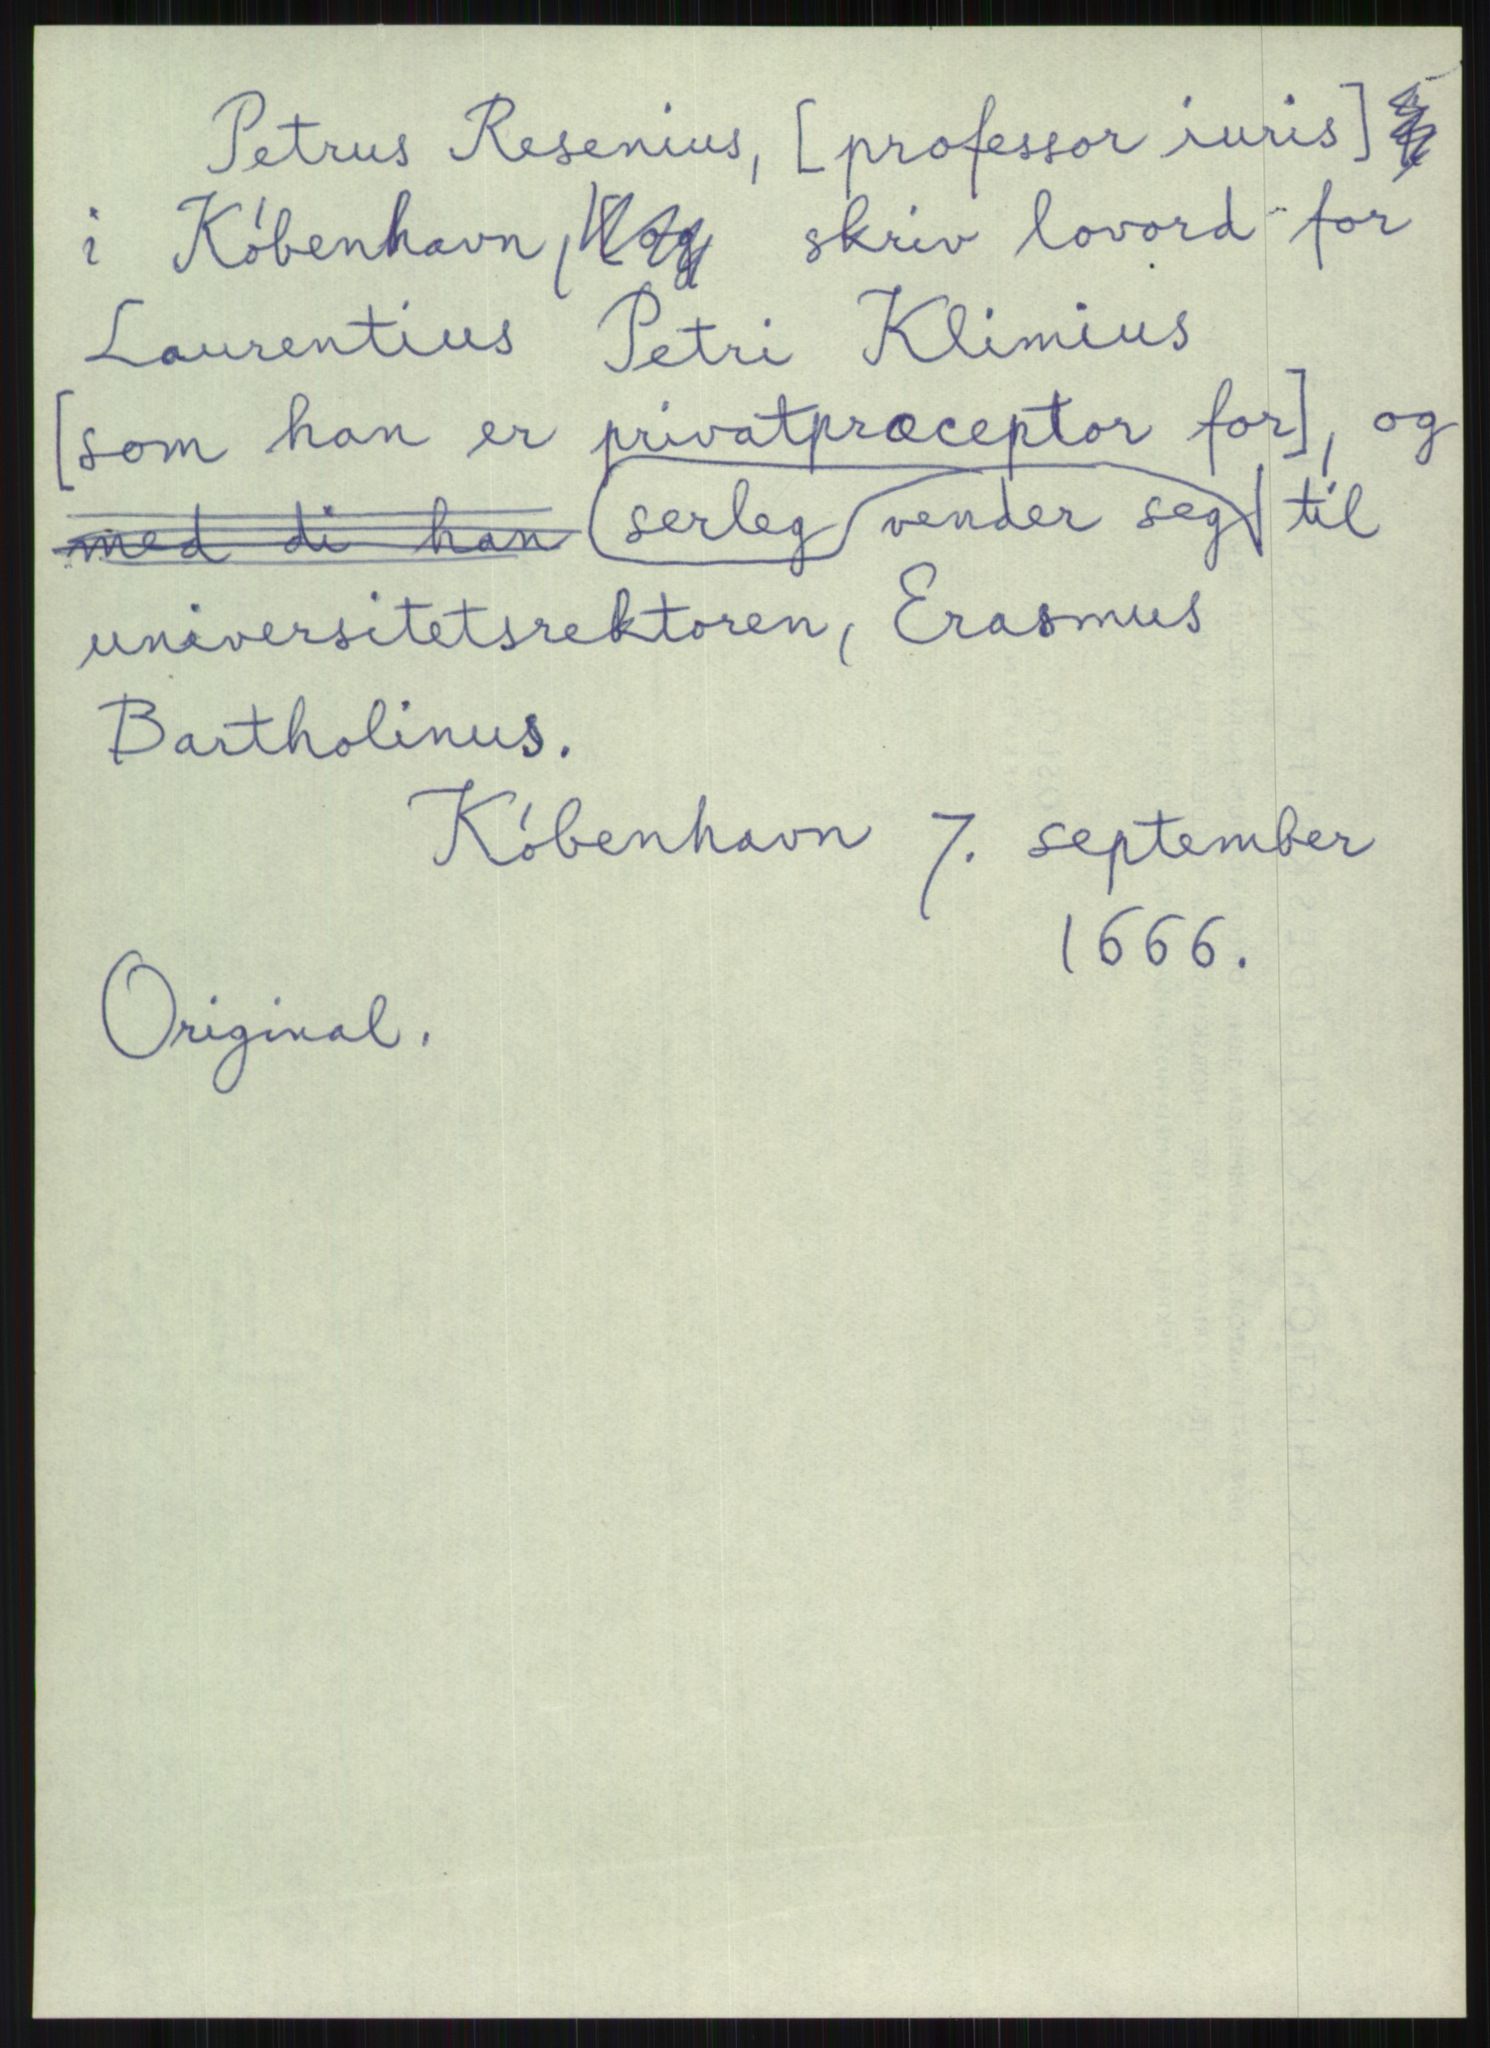 Petrus Resenius, [professor iuris]
i København, skriv lovord for
Laurentius Petri Klimius
[som han er privatpræceptor for], og
med di han serleg vender seg til
universitetsrektoren, Erasmus
Bartholinus.
København 7. september
1666.
Original.